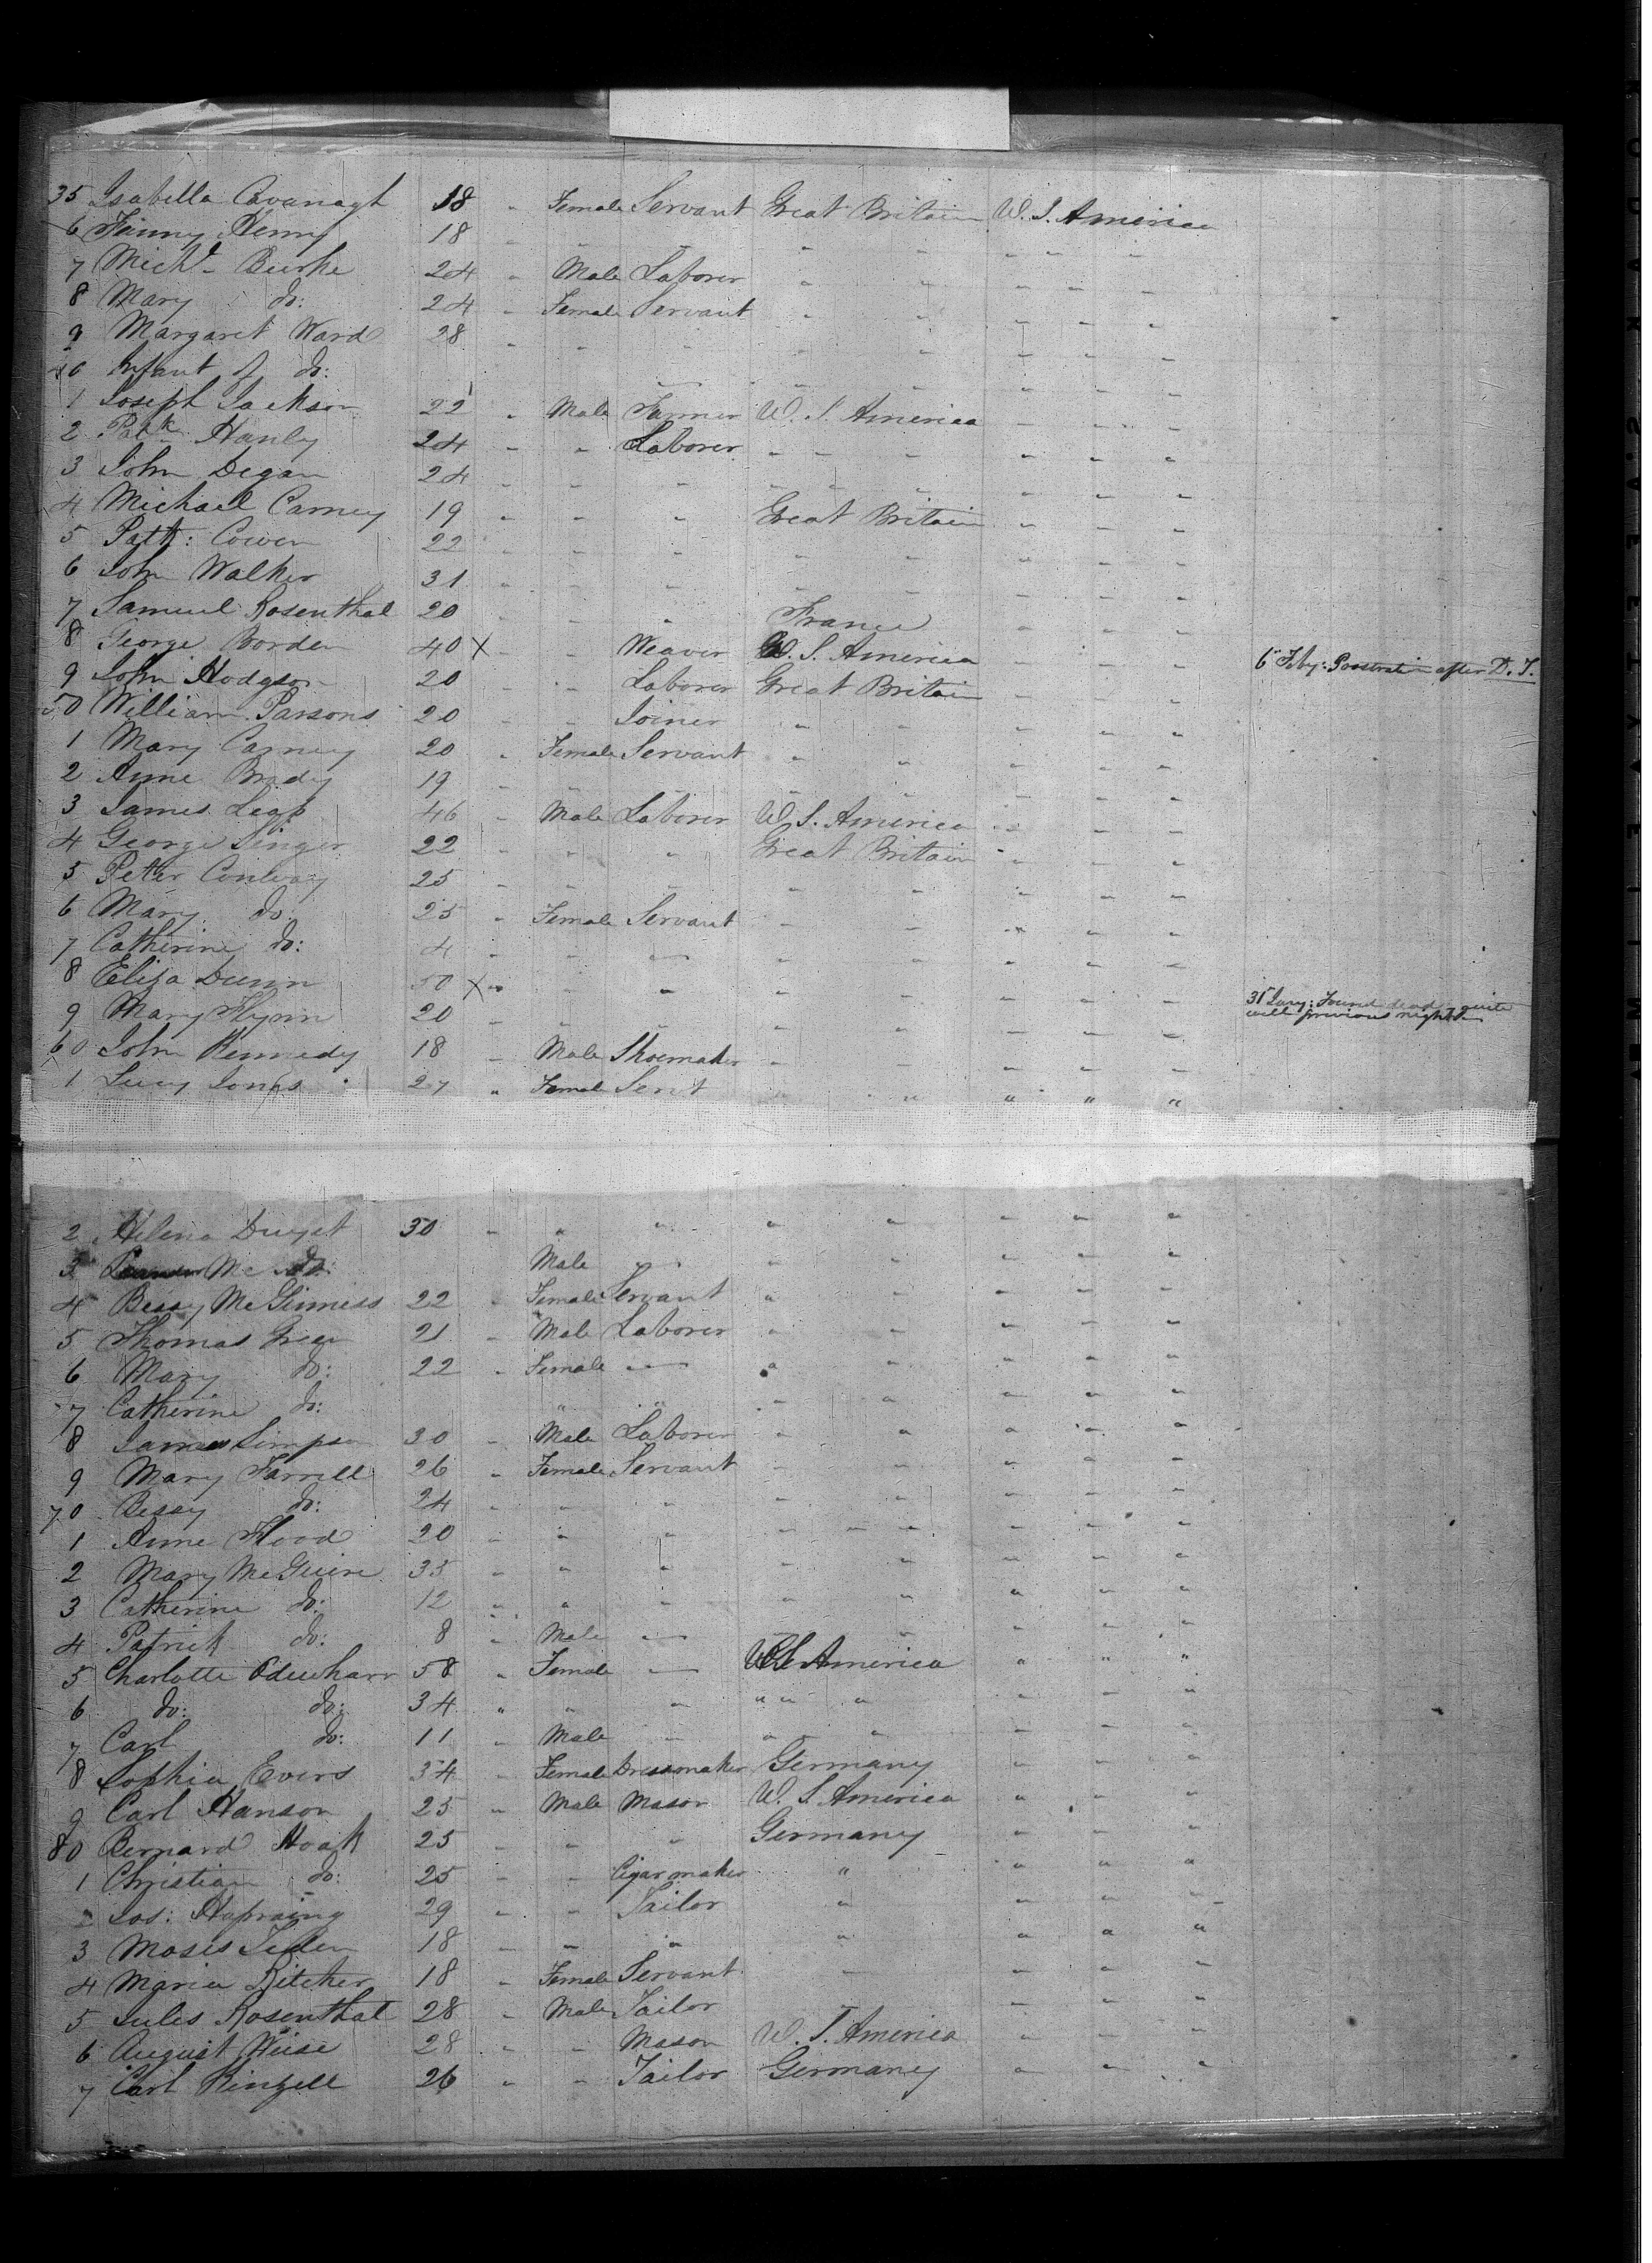 35 Isabella Cavanagh 18 " Female Servant Great Britain U.S. America
6 Fanny Henny 18 " " " " " " " "
7 Mich.l Burke 24 " Male Laborer " " " " "
8 Mary do: 24 " Female Servant " " " " "
9 Margaret Ward 28 " " " " " " " "
40 Infant of do: — " " " " "
1 Joseph Jackson 22 " Male Farmer U.S. America " " "
2 Patk Hanly 24 " " Laborer " " " " " "
3 John Degan 24 " " " " " " " " "
4 Michael Carney 19 " " " Great Britain " " "
5 Patk: Cowen 22 " " " " " " " "
6 John Walker 31 " " " " " " " "
7 Samuel Rosenthal 20 " " " France " " "
8 George Borden 40 X " " Weaver U.S. America " " " 6" Feby: Prostration after D.T.
9 John Hodgson 20 " " Laborer Great Britain " " "
50 William Parsons 20 " " Joiner " " " " "
1 Mary Carney 20 " Female Servant " " " " "
2 Anne Brady 19 " " " " " " " "
3 James 46 " Male Laborer U.S. America " " "
4 George Singer 22 " " " Great Britain " " "
5 Peter Conway 25 " " " " " " " "
6 Mary do: 25 " Female Servant " " " " "
7 Catherine do: 4 " " — " " " " "
8 Eliza Dunn 50 X " " " " " " " " 31" Jany: Found dead, quite
well previous night
9 Mary Flynn 20 " " " " " " " "
60 John Kennedy 18 " Male Shoemaker " " " " "
1 Lucy Jones 27 " Female Servt " " " " "
2 Helena 30 " " " " " " " "
3 do: Male " " " " " "
4 Bessy McGinness 22 " Female Servant " " " " "
5 Thomas Greer 21 " Male Laborer " " " " "
6 Mary do: 22 " Female — " " " " "
7 Catherine do: " " " " " " "
8 James Simpson 30 " Male Laborer " " " " "
9 Mary Farrell 26 " Female Servant " " " " "
70 Bessy do: 24 " " " " " " " "
1 Anne Flood 20 " " " " " " " "
2 Mary McGuire 35 " " " " " " " "
3 Catherine do: 12 " " " " " " " "
4 Patrick do: 8 " Male — " " " " "
5 Charlotte 58 " Female — U.S. America " " "
6 do: do: 34 " " " " " " " " "
7 Carl do: 11 " Male " " " " " "
8 Sophia Evers 34 " Female Dressmaker Germany " " "
9 Carl Hanson 25 " Male Mason U.S. America " " "
80 Bernard Hoak 25 " " " Germany " " "
1 Christian do: 25 " " Cigar maker " " " "
2 Jos: 29 " " Tailor " " " "
3 Moses 18 " " " " " " "
4 Maria Kitcher 18 " Female Servant " " " "
5 Jules Rosenthal 28 " Male Tailor " " " "
6 August 28 " " Mason U.S. America " " "
7 Carl Kinzell 26 " " Tailor Germany " " "